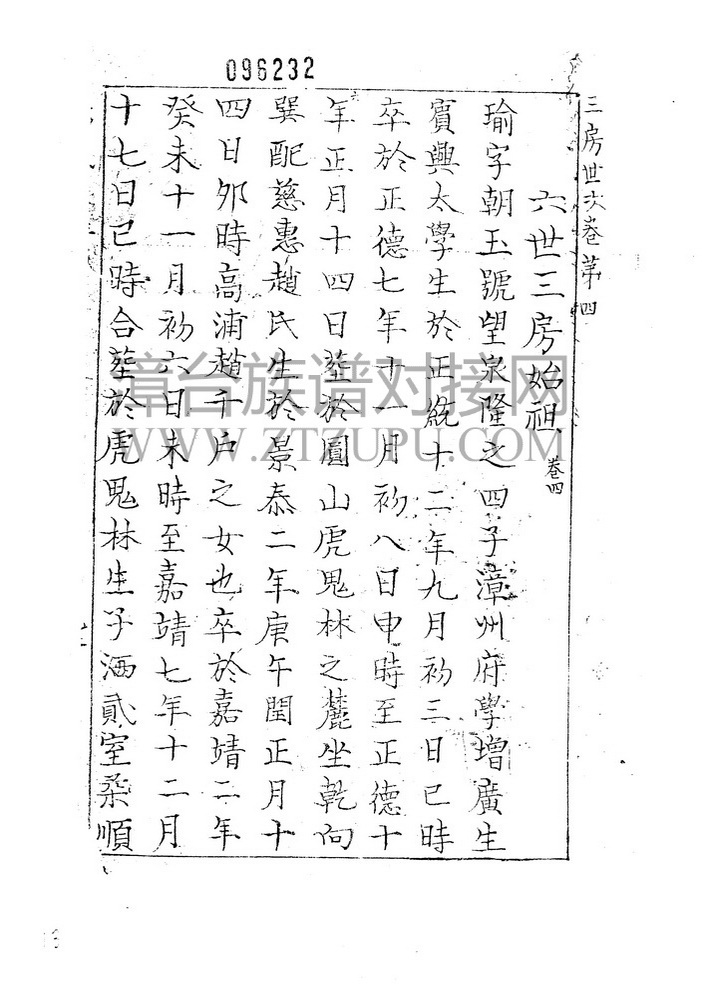 096232
三房世次卷第四
六世三房始祖 卷四
瑜字朝玉號望泉隆之四子漳州府學增廣生
賓興太學生於正統十二年九月初三日巳時
卒於正德七年十一月初八日申時至正德十
年正月十四日葬於圓山虎鬼林之麓坐乾向
巽配慈惠趙氏生於景泰二年庚午閏正月十
四日夘時高浦趙千戶之女也卒於嘉靖二年
癸未十一月初六日未時至嘉靖七年十二月
十七日巳時合葬於虎鬼林生子洒貳室柔順
漳台族谱对接网
WWW.ZTZUPU.COM